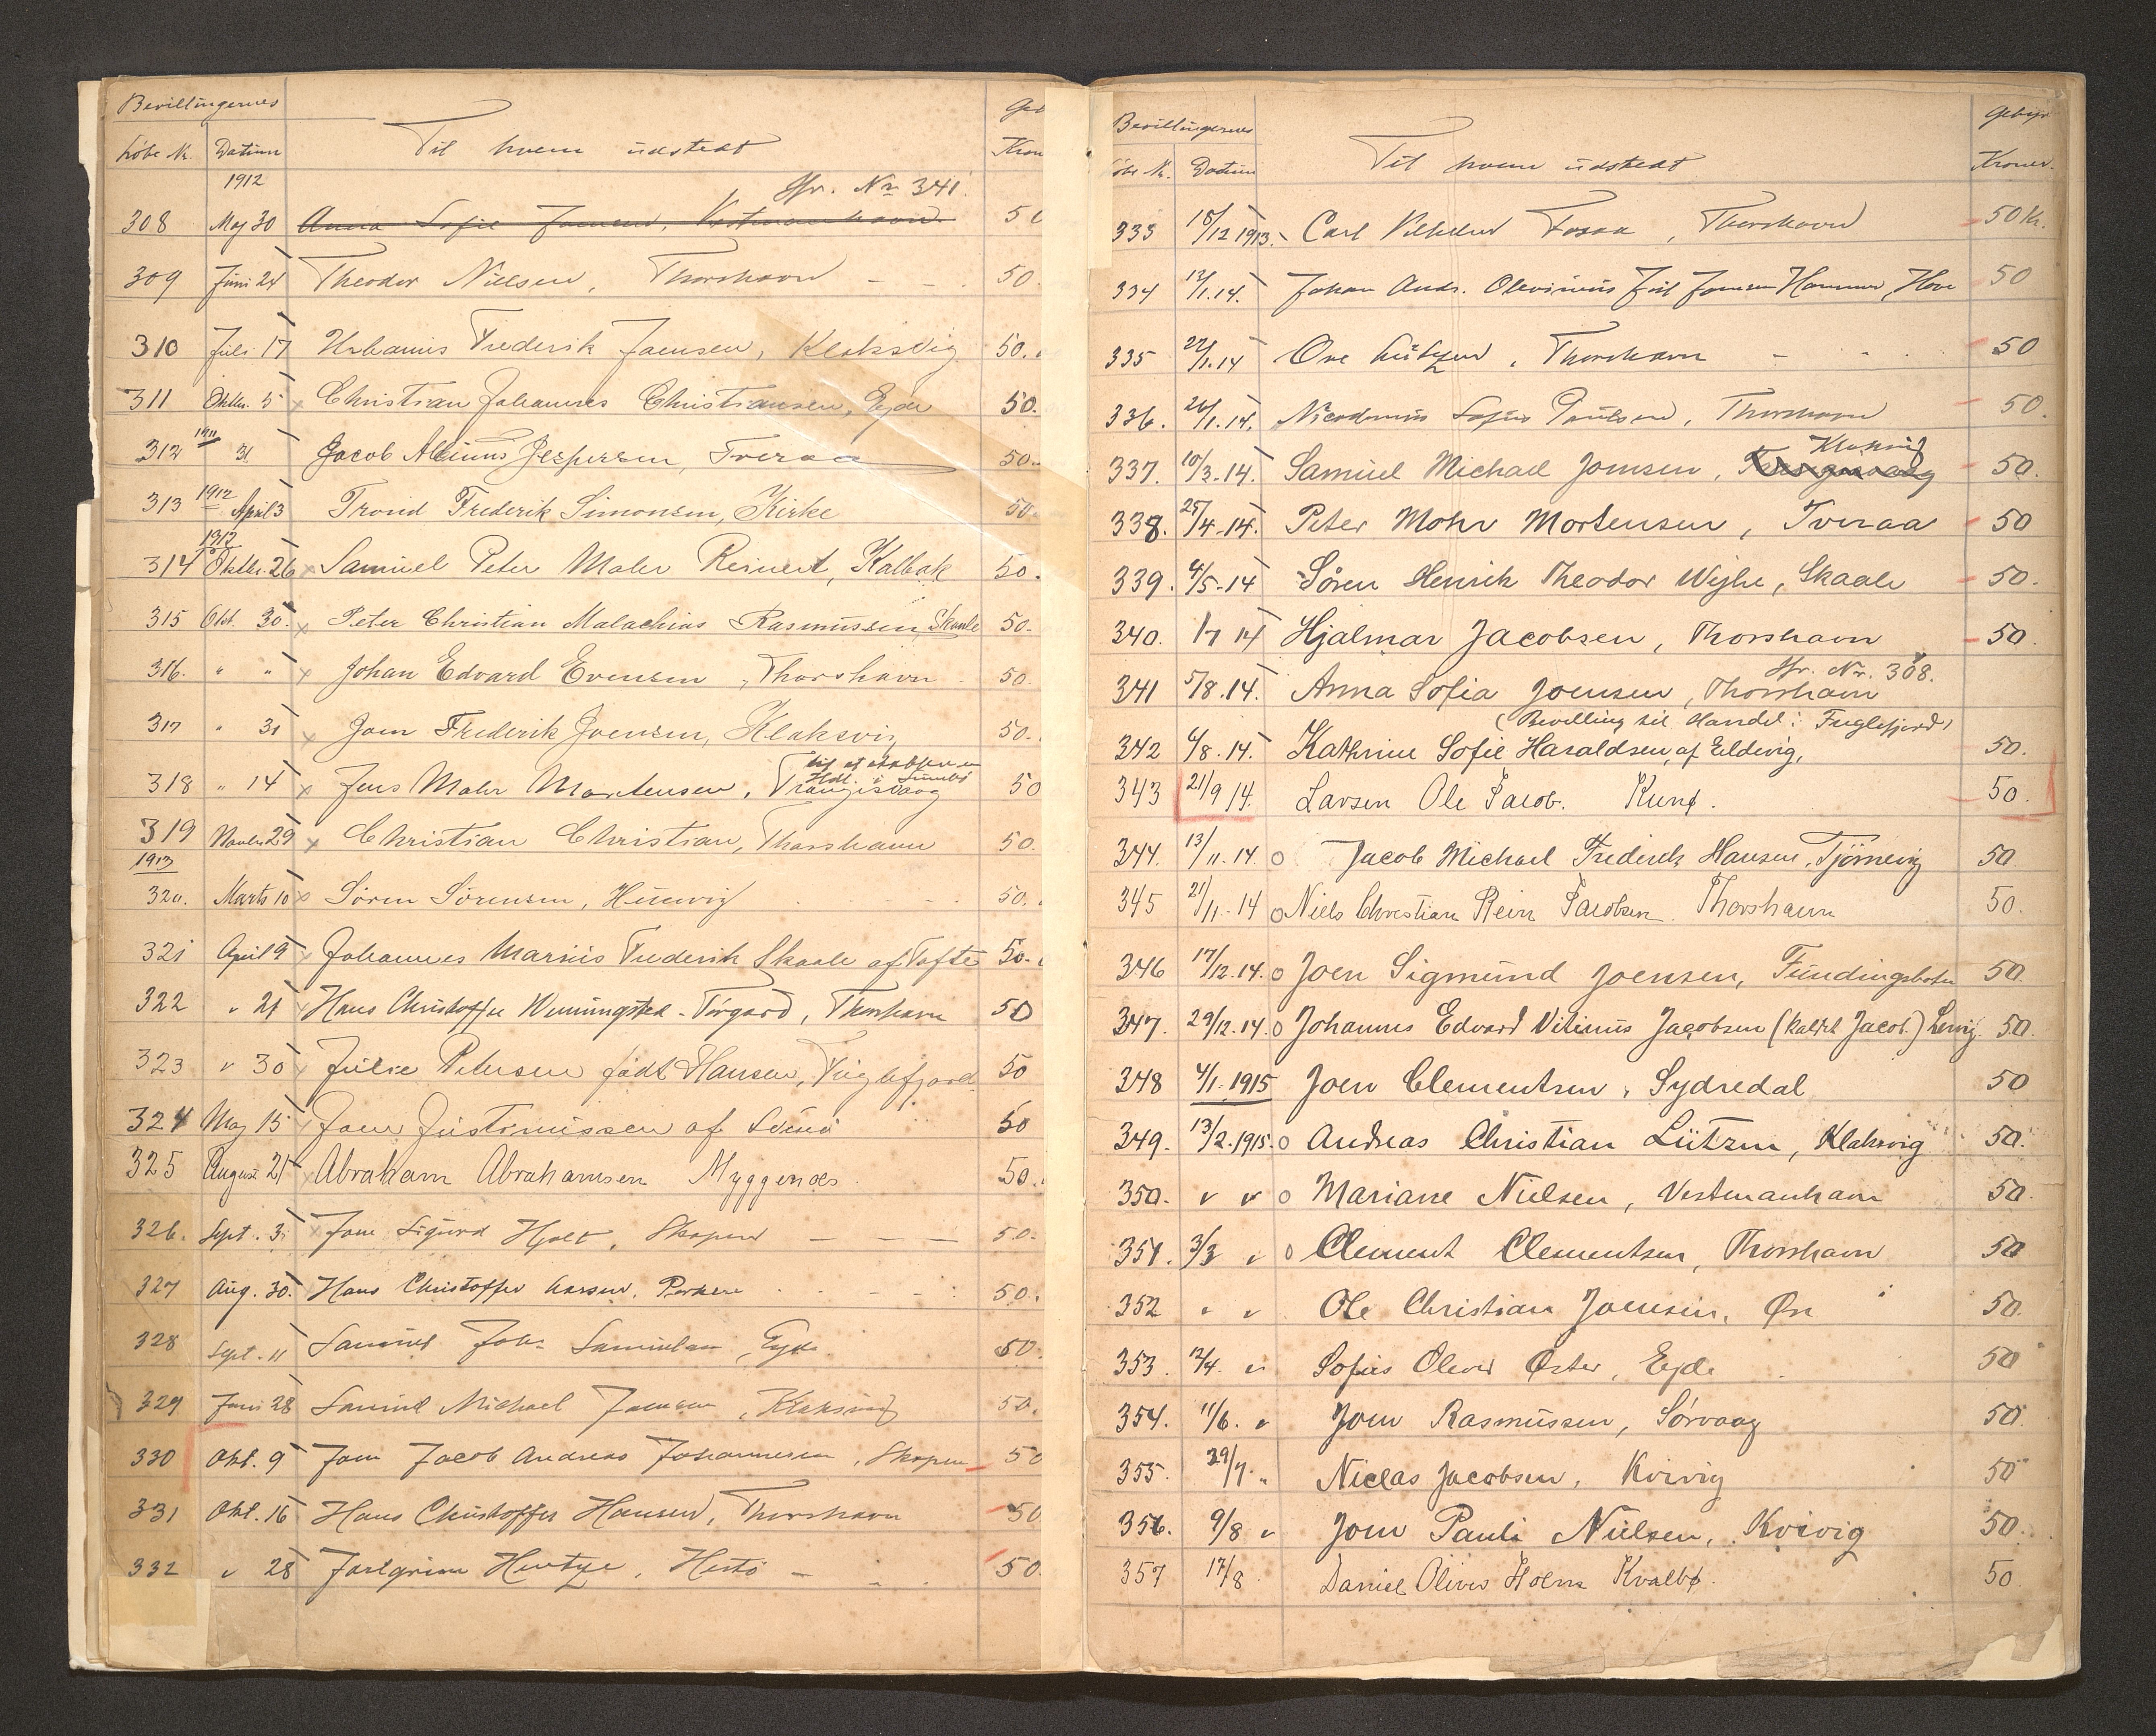 Bevillingernes
Löbe Nr. Datum Til hvem udstedt Kron
1912
Jfr. Nr 341.
308 Maj 30 Anna Sofie Joensen, Vestmanhavn 50
309 Juni 24 Theodor Nielsen, Thorshavn - - 50.
310 Juli 17 Urbanus Frederik Joensen, Klaksvig 50.
311 Oktbr. 5 x Christian Johannes Christiansen, Eyde 50.
312 1911 31 Jacob Albinus Jespersen, Tveraa 50.
313 1912 April 3 Trond Frederik Simonsen, Kirke 50
1912
314 Oktbr. 26 x Samuel Peter Maler Reinert, Kalbak 50.
315 Okt. 30. x Peter Christian Malachias Rasmussen, Skaale 50.
316. " " x Johan Edvard Evensen, Thorshavn 50.
317 " 31 x Joen Frederik Joensen, Klaksvig 50.
318 " 14 x Jens Mohr Mortensen, Trangisvaag 50
319 Novbr. 29 x Christian Christian, Thorshavn 50.
1913
320. Marts 10 x Sören Sörensen, Husevig 50.
321 April 9 x Johannes Marius Frederik Skaale af Tofte 50.
322 " 21 Hans Christoffer Wenningsted-Tórgard, Thorshavn 50
323 " 30 Julie Petersen födt Hansen, Fuglefjord 50
324 Maj 15 Joen Justinussen af 50
325 August 21 Abraham Abrahamsen Myggenæs 50.
326. Sept. 3. x Joen Sigurd Hjalt, Skopen — — — 50.
327 Aug. 30. Hans Christoffer Larsen, Porkere 50.
328 Sept. 11 Samuel Joh. Samuelsen, Eyde 50.
329 Juni 28 Samuel Michael Joensen, Klaksvig 50.
330 Okt. 9 Joen Jacob Andreas Johannesen, Skopen 50
331 Okt. 16 Hans Christoffer Hansen, Thorshavn 50
332 " 28 Jastgrim Hentze, Hestö - - 50.
Bevillingernes Gebyr
Nr. Datum Til hvem udstedt Kroner.
333 /12 1913. Carl Vilhelm Fossa, Thorshavn 50 Kr.
334 12/1.14. Johan Andr. Olevinus Joensen Hammer, Hove 50
335 22/1.14 Ove Lützen, Thorshavn - 50
336. 26/1.14. Nicodemus Sofus Poulsen, Thorshavn 50.
Klaksvig
337. 10/3.14. Samuel Michael Joensen, 50.
338. 25/4.14. Peter Mohr Mortensen, Tveraa 50
339. 4/5-14 Sören Henrik Theodor Wejhe, Skaale 50.
340. 1/7 14 Hjalmar Jacobsen, Thorshavn 50.
Jfr. Nr. 308.
341 5/8.14. Anna Sofia Joensen, Thorshavn
(Bevilling til Handel i Fuglefjord)
342 6/8.14. Kathrine Sofie Haraldsen, af Eldevig, 50.
343 21/9 14. Larsen Ole Jacob. Kunø. 50.
344. 13/11.14 o Jacob Michael Frederik Hansen, Tjörnevig 50.
345 21/11-14 o Niels Christian Rein Jacobsen. Thorshavn 50.
346 17/12.14. o Joen Sigmund Joensen, Fundingsbotn 50.
347. 29/12.14. o Johannes Edvard Vitinus Jacobsen (kaldet Jacob.) Lervig 50.
348 4/1.1915 Joen Clementsen, Sydredal 50
349. 13/2.1915. o Andreas Christian Lützen, Klaksvig 50.
350. " " o Mariane Nielsen, Vestmanhavn 50.
351. 3/3 " o Clement Clementsen, Thorshavn 50
352 " " Ole Christian Joensen, Øre 50.
353. 12/4. " Sofus Oliver Øster, Eyde 50
354. 11/6. " Joen Rasmussen, Sörvaag 50.
355. 29/7. " Niclas Jacobsen, Kvivig 50
356. 9/8 " Joen Pauli Nielsen, Kvivig 50.
357 17/8 Daniel Oliver Holm Kvalbø. 50